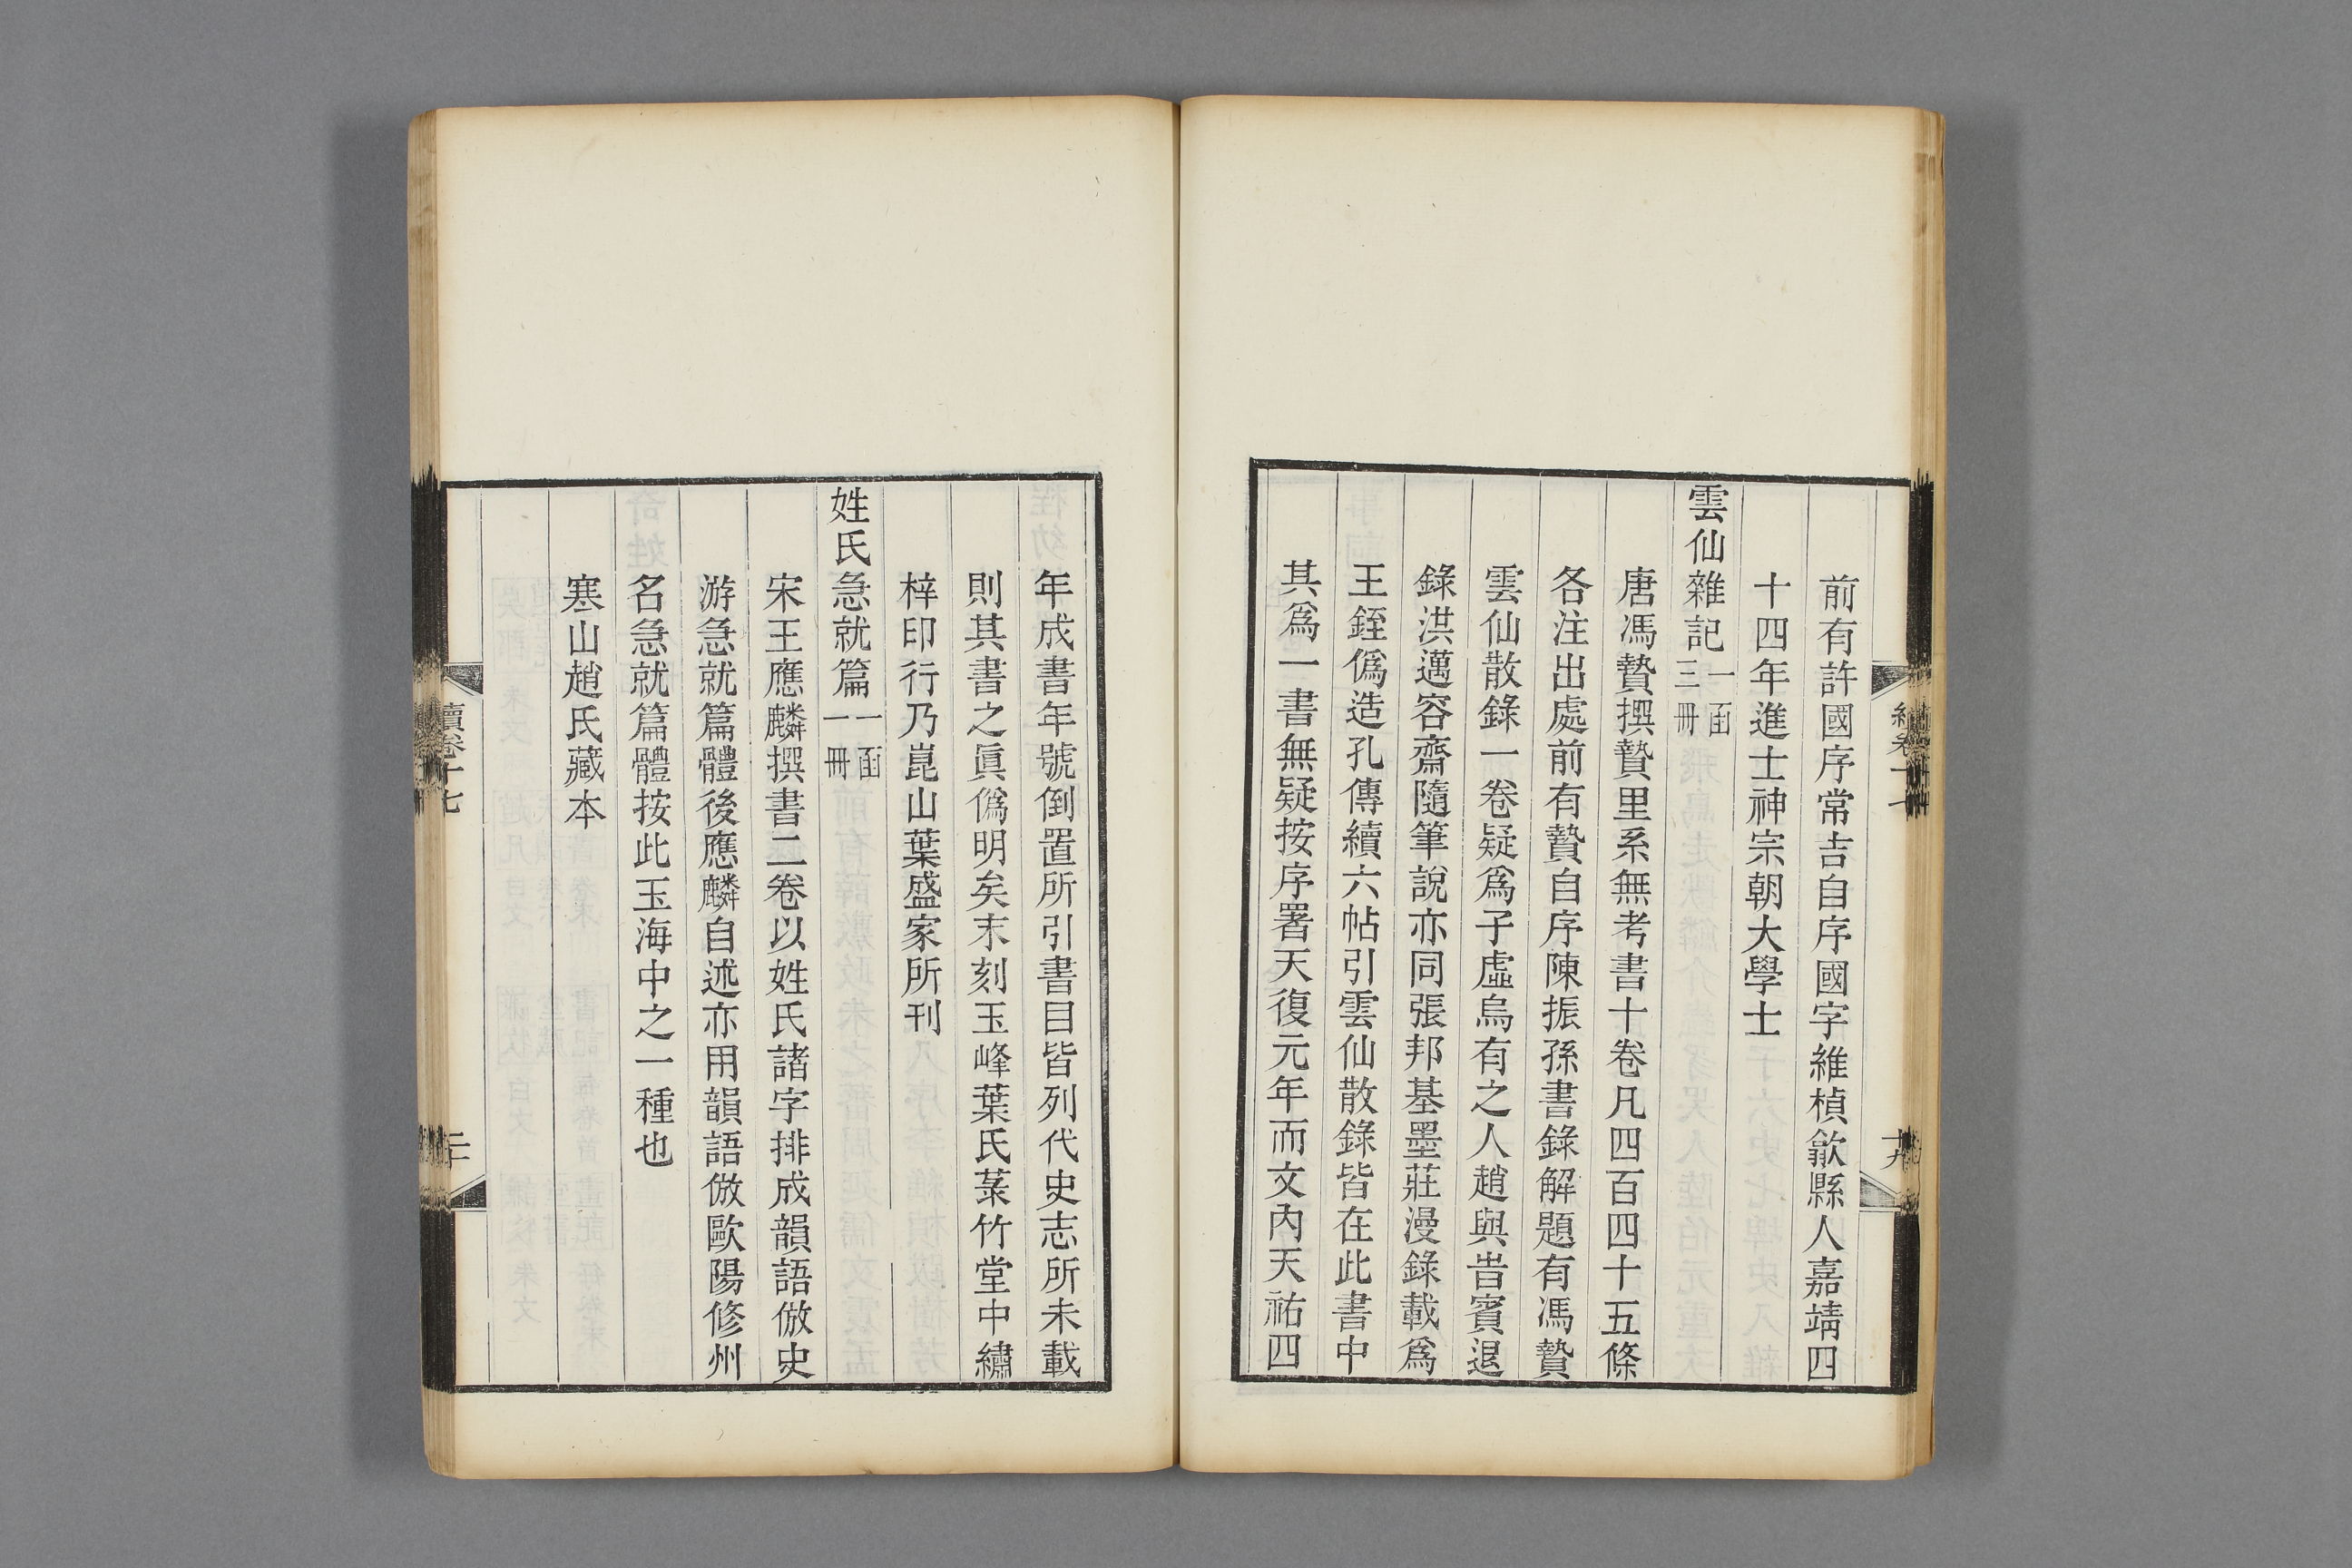 前有許國序常吉自序國字維楨歙縣人嘉靖四
十四年進士神宗朝大學士
雲仙雜記一函三冊
唐馮贄撰贄里系無考書十卷凡四百四十五條
各注出處前有贄自序陳振孫書錄解題有馮贄
雲仙散錄一卷疑爲子虛烏有之人趙與旹賓退
錄洪邁容齋隨筆說亦同張邦基墨莊漫錄載爲
王銍僞造孔傳續六帖引雲仙散錄皆在此書中
其爲一書無疑按序署天復元年而文內天祐四
十九
年成書年號倒置所引書目皆列代史志所未載
則其書之眞僞明矣末刻玉峰葉氏菉竹堂中繡
梓印行乃崑山葉盛家所刊
姓氏急就篇一函一冊
宋王應麟撰書二卷以姓氏諸字排成韻語倣史
游急就篇體後應麟自述亦用韻語倣歐陽修州
名急就篇體按此玉海中之一種也
寒山趙氏藏本
續卷十七
二十